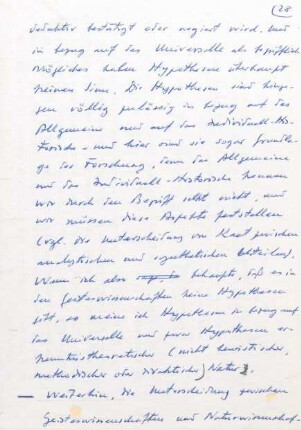 (28
deduktiv bestätigt oder negiert wird. Und
in bezug auf das Universelle als begrifflich
Mögliches haben Hypothesen überhaupt
keinen Sinn. Die Hypothesen sind hinge-
gen völlig zulässig in bezug auf das
Allgemeine und auf das Individuell-His-
torische – und hier sind sie sogar Grundla-
ge der Forschung, denn das Allgemeine
und das Individuell-Historische kennen
wir durch den Begriff selbst nicht, und
wir müssen diese Aspekte feststellen
(vgl. die Unterscheidung von Kant zwischen
analytischen und synthetischen Urteilen).
Wenn ich also behaupte, daß es in
den Geisteswissenschaften keine Hypothesen
gibt, so meine ich Hypothesen in bezug auf
das Universelle und zwar Hypothesen er-
kenntnistheoretischer (nicht heuristischer,
methodischer oder didaktischer) Natur.
— Weiterhin, die Unterscheidung zwischen
Geisteswissenschaften und Naturwissenschaf-